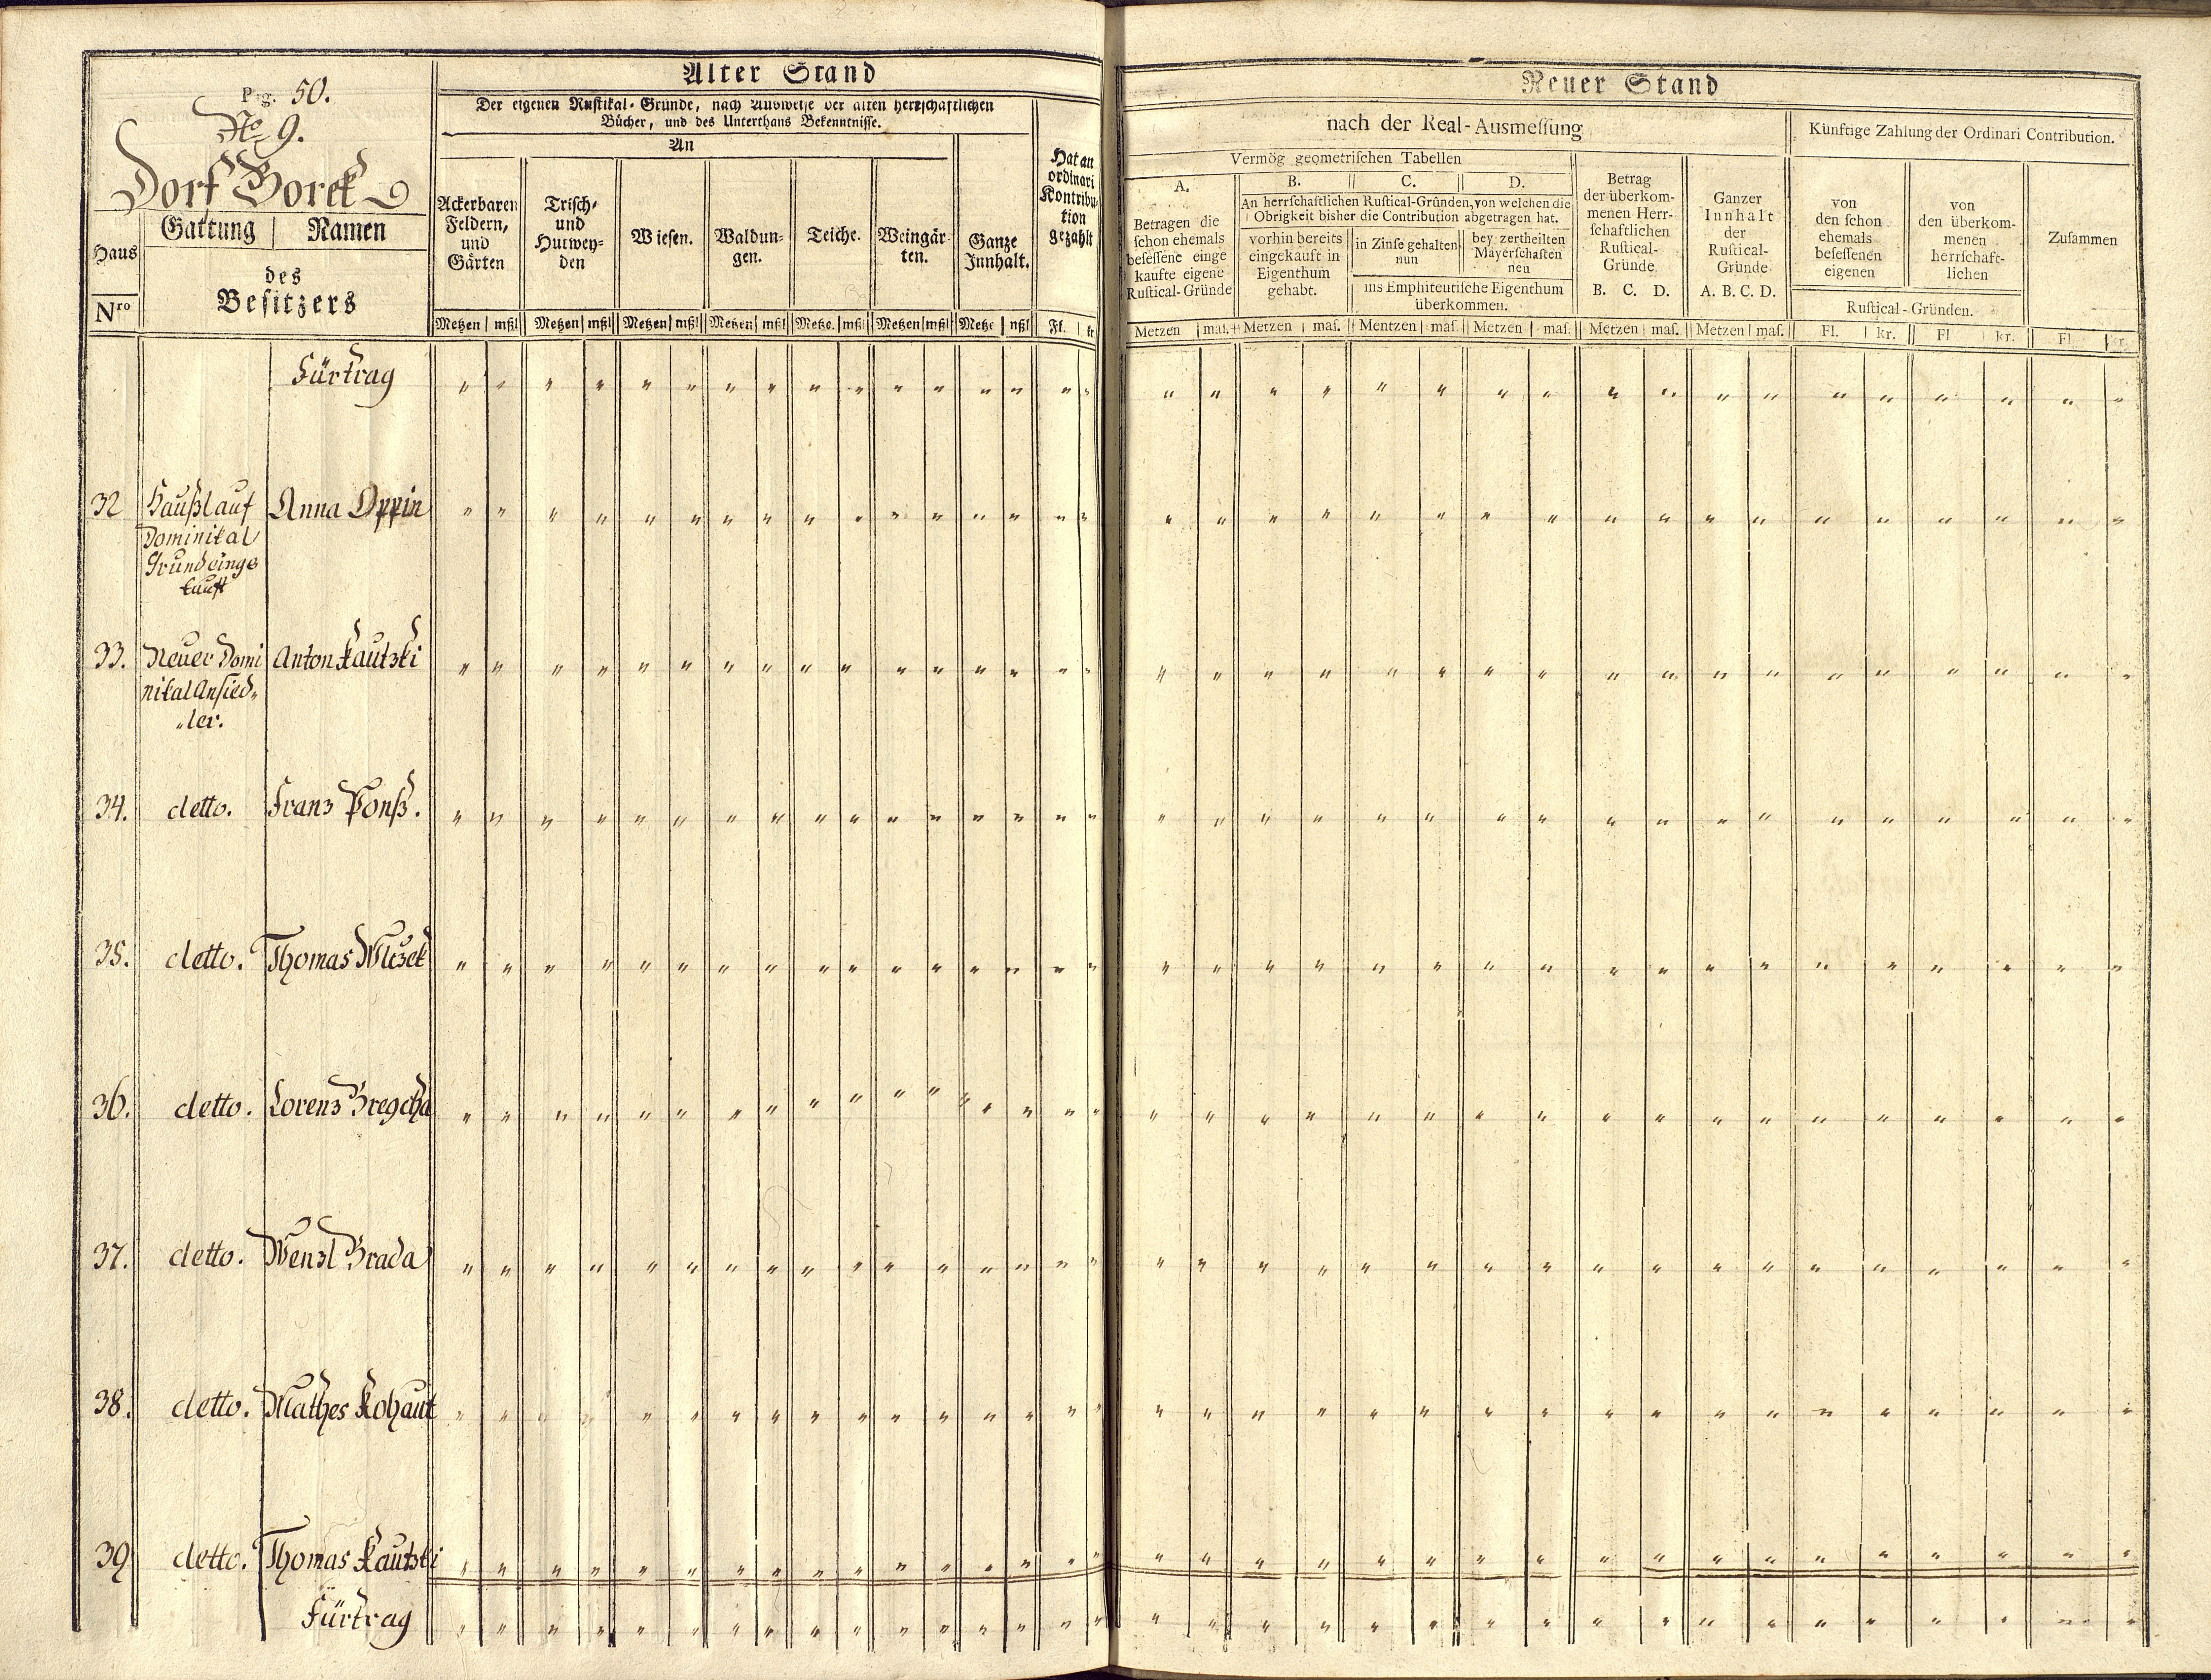 Pag. 50.
No 9.
Dorf Borek
Haus
Nro
Gattung | Namen
des
Besitzers
Alter Stand
Der eigenen Rustikal-Gründe, nach Ausweise der alten herrschaftlichen
Bücher, und des Unterthans Bekenntnisse.
An
Ackerbaren
Feldern,
und
Gärten
Trisch-
und
Hutwey-
den
Wiesen.
Waldun-
gen.
Teiche.
Weingär-
ten.
Ganze
Innhalt.
Hat an
ordinari
Kontribu-
tion
gezahlt
Metzen | mßl Metzen | mßl Metzen | mßl Metzen | mßl Metze. | mßl Metzen | mßl Metze | mßl Fl. | kr
Neuer Stand
nach der Real-Ausmessung
Künftige Zahlung der Ordinari Contribution.
Vermög geometrischen Tabellen
A.
Betragen die
schon ehemals
besessene einge
kaufte eigene
Rustical-Gründe
B. C. D.
An herrschaftlichen Rustical-Gründen, von welchen die
Obrigkeit bisher die Contribution abgetragen hat.
vorhin bereits
eingekauft in
Eigenthum
gehabt.
in Zinse gehalten
nun
bey zertheilten
Mayerschaften
neu
ins Emphiteutische Eigenthum
überkommen.
Betrag
der überkom-
menen Herr-
schaftlichen
Rustical-
Gründe
B. C. D.
Ganzer
Innhalt
der
Rustical-
Gründe
A. B. C. D.
von
den schon
ehemals
besessenen
eigenen
von
den überkom-
menen
herrschaft-
lichen
Rustical-Gründen.
Zusammen
Metzen | mas. Metzen | mas. Mentzen | mas. Metzen | mas. Metzen | mas. Metzen | mas. Fl. | kr. Fl | kr. Fl. | kr.
Fürtrag
32 Haußl auf Anna Oppin
Dominikal
Grund einge
kauft
33. Neuer Domi Anton Kautzki
nikal Ansied„
„ler.
34. detto. Franz Ponß.
35. detto. Thomas Wlczek
36. detto. Lorenz Bregcha
37. detto. Wenzl Brada
38. detto. Mathes Kohaut
39 detto. Thomas Kautzki
Fürtrag